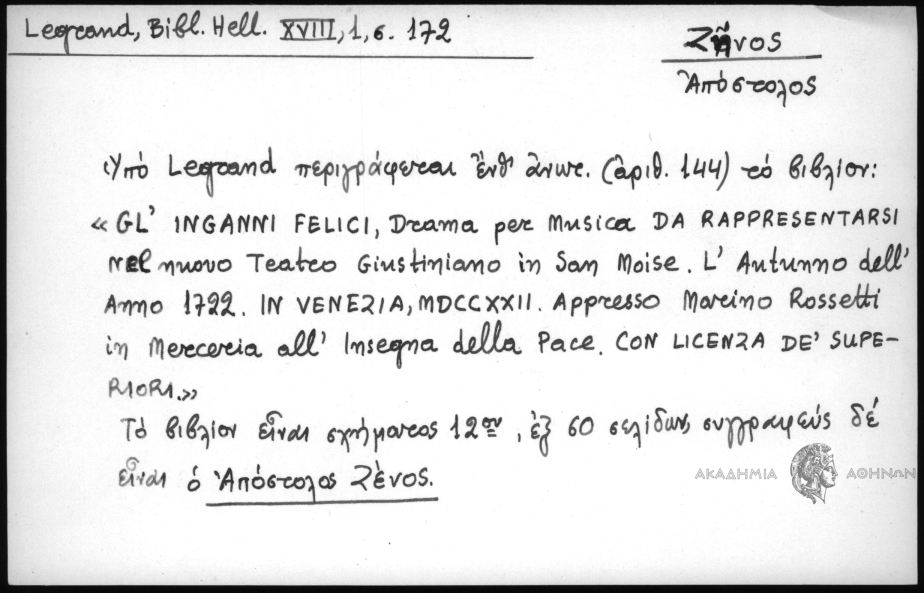 Legrand, Bibl. Hell. XVIII, 1, σ. 172
Ζῆνος
Ἀπόστολος
Ὑπό Legrand περιγράφεται ἔνθ' ἄνωτ. (ἀριθ. 144) τό βιβλίον:
« GL' INGANNI FELICI, Drama per Musica DA RAPPRESENTARSI
nel nuovo Teatro Giustiniano in San Moise. L' Autunno dell'
Anno 1722. IN VENEZIA, MDCCXXII. Appresso Marino Rossetti
in Merceria all' Insegna della Pace. CON LICENZA DE' SUPE-
RIORI.»
Τό βιβλίον εἶναι σχήματος 12ου, ἐξ 60 σελίδων, συγγραφεύς δέ
εἶναι ὁ Ἀπόστολος Ζένος.
ΑΚΑΔΗΜΙΑ ΑΘΗΝΩΝ